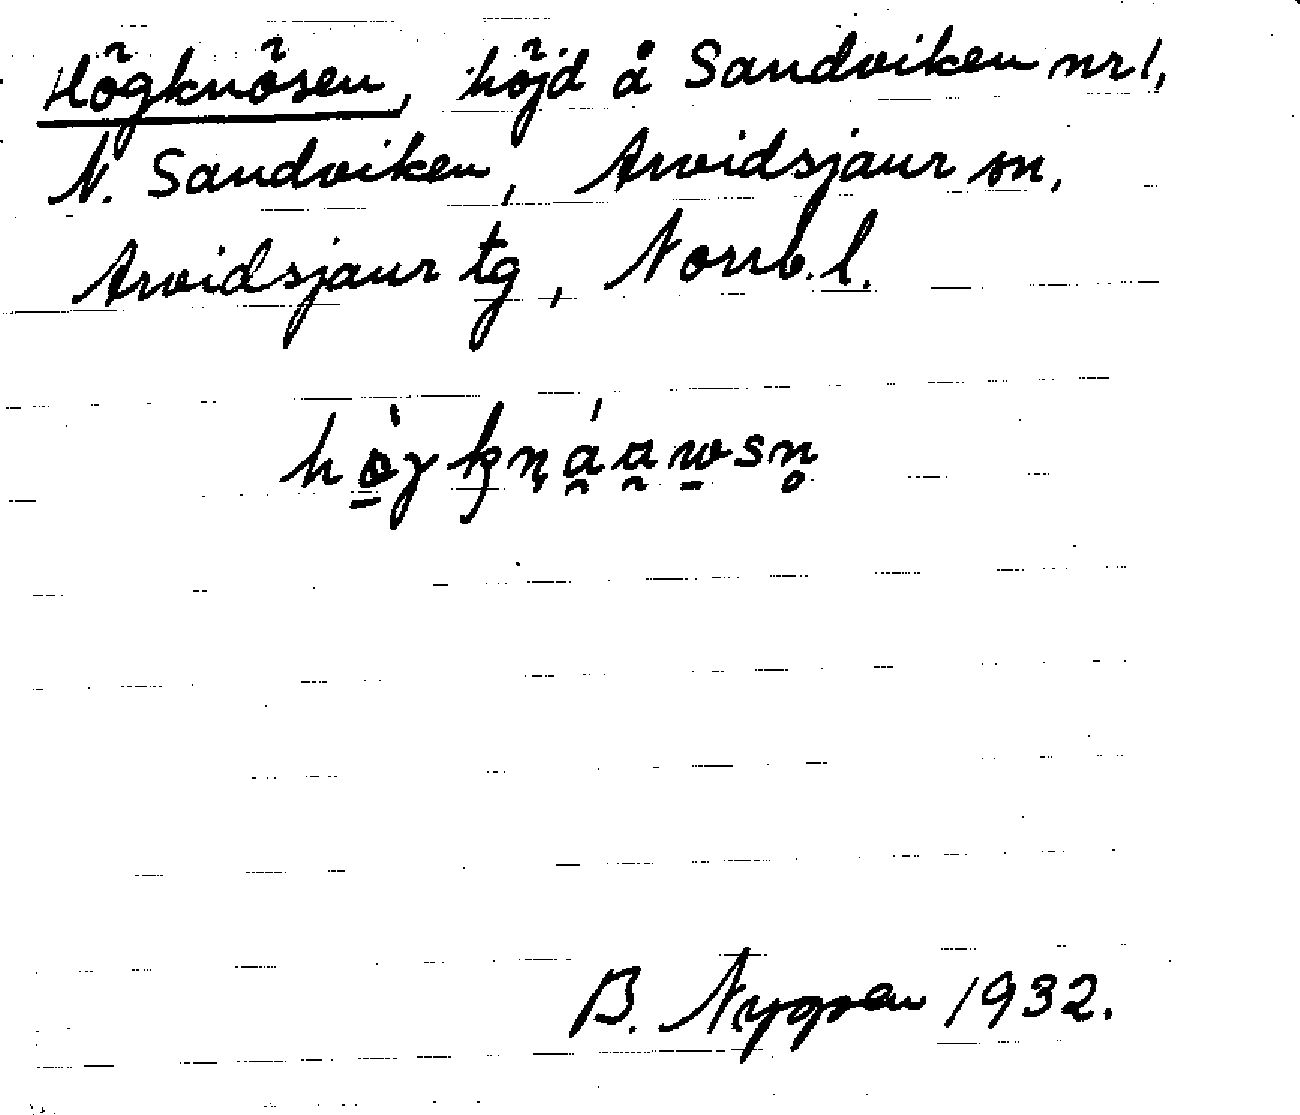 Högknösen, höjd å Sandviken nr 1,
N. Sandviken, Arvidsjaur sn,
Arvidsjaur tg, Norrb. l.
B. Nygren 1932.